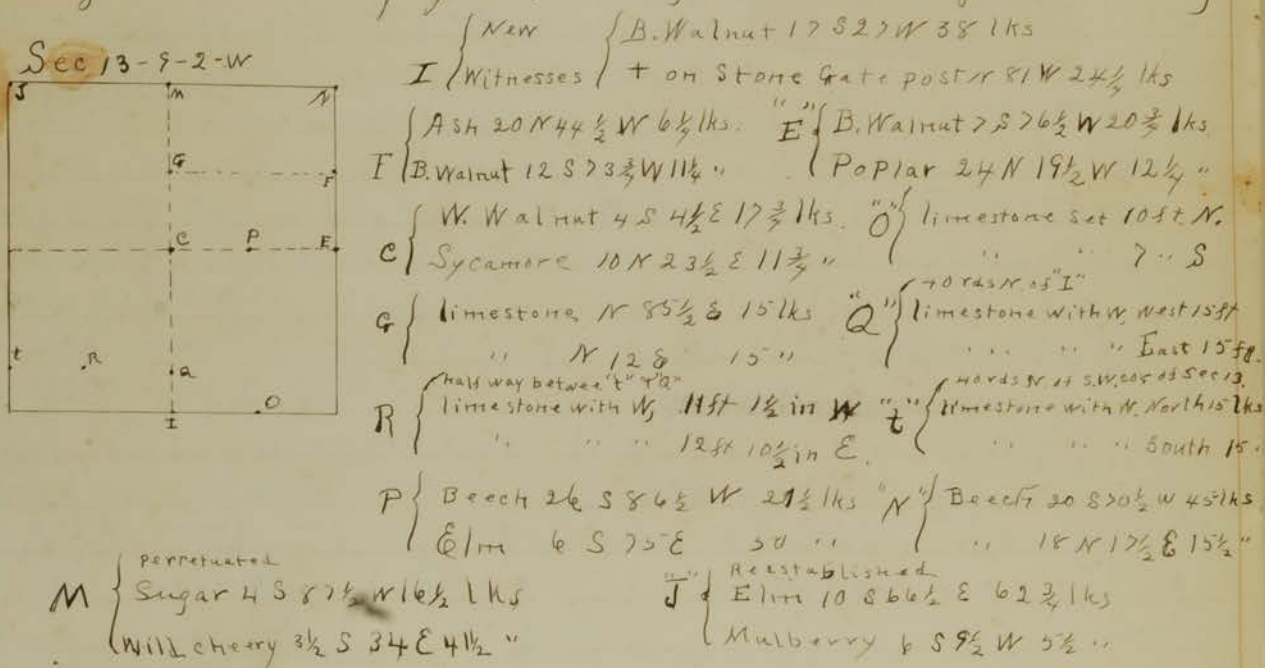 Sec 13-9-2-W
J M N
G F
C P E
t R Q
I O
I { New Witnesses { B. Walnut 17 S 27 W 38 lks
+ on Stone Gate post N 81 W 24 1/4 lks
F { Ash 20 N 44 1/2 W 6 1/4 lks.
B. Walnut 12 S 73 3/4 W 11 1/4 "
"E" { B. Walnut 7 S 76 1/2 W 20 3/4 lks
Poplar 24 N 19 1/2 W 12 1/4 "
C { W. Walnut 4 S 4 1/2 E 17 3/4 lks.
Sycamore 10 N 23 1/2 E 11 3/4 "
"O" { limestone set 10 ft. N.
" " 7 " S
G { limestone N 85 1/2 E 15 lks
" N 12 E 15 "
"Q" { 40 rds N of "I"
limestone with W, West 15 ft
" " " East 15 ft.
R { half way betwee "t" & "Q"
limestone with W, 11 ft 1 1/2 in W
" " " 12 ft 10 1/2 in E.
"t" { 40 rds N of S.W. cor of Sec 13.
limestone with N. North 15 lks
" " " South 15 "
P { Beech 26 S 86 1/2 W 21 1/2 lks
Elm 6 S 75 E 50 "
"N" { Beech 20 S 70 1/2 W 45 lks
" 18 N 17 1/2 E 15 1/2 "
M { perpetuated
Sugar 4 S 87 1/2 W 16 1/2 lks
Wild cheery 3 1/2 S 34 E 41 1/2 "
"J" { Reestablished
Elm 10 S 66 1/2 E 62 3/4 lks
Mulberry 6 S 9 1/2 W 5 1/2 "